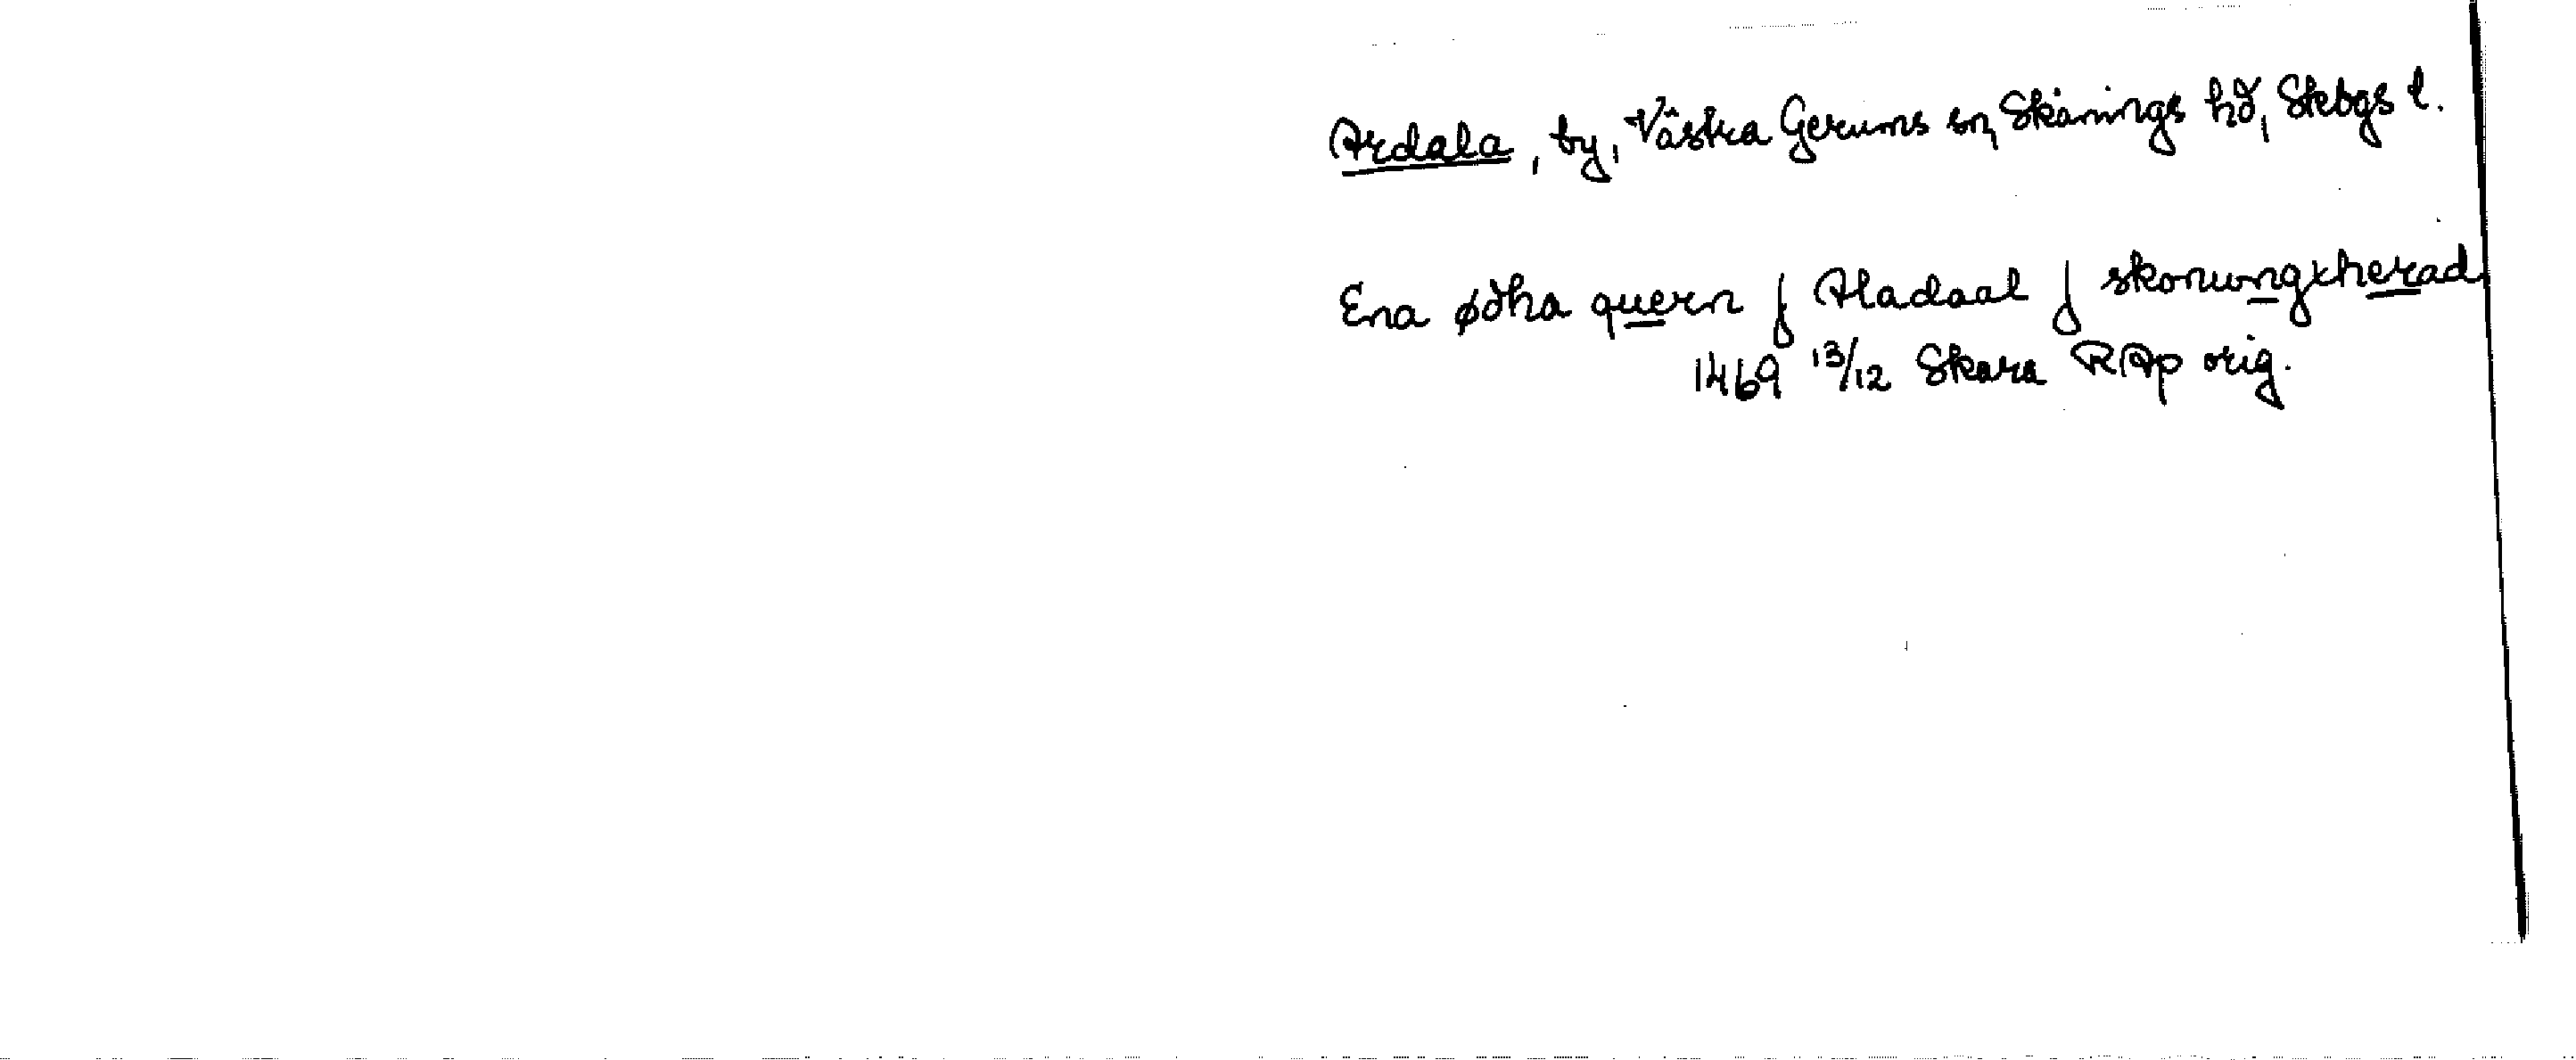 Ardala, by, Västra Gerums sn, Skånings hd, Skbgs l.
Ena ødha quern j Aladaal j skonungxherad
1469 13/12 Skara RAp orig.